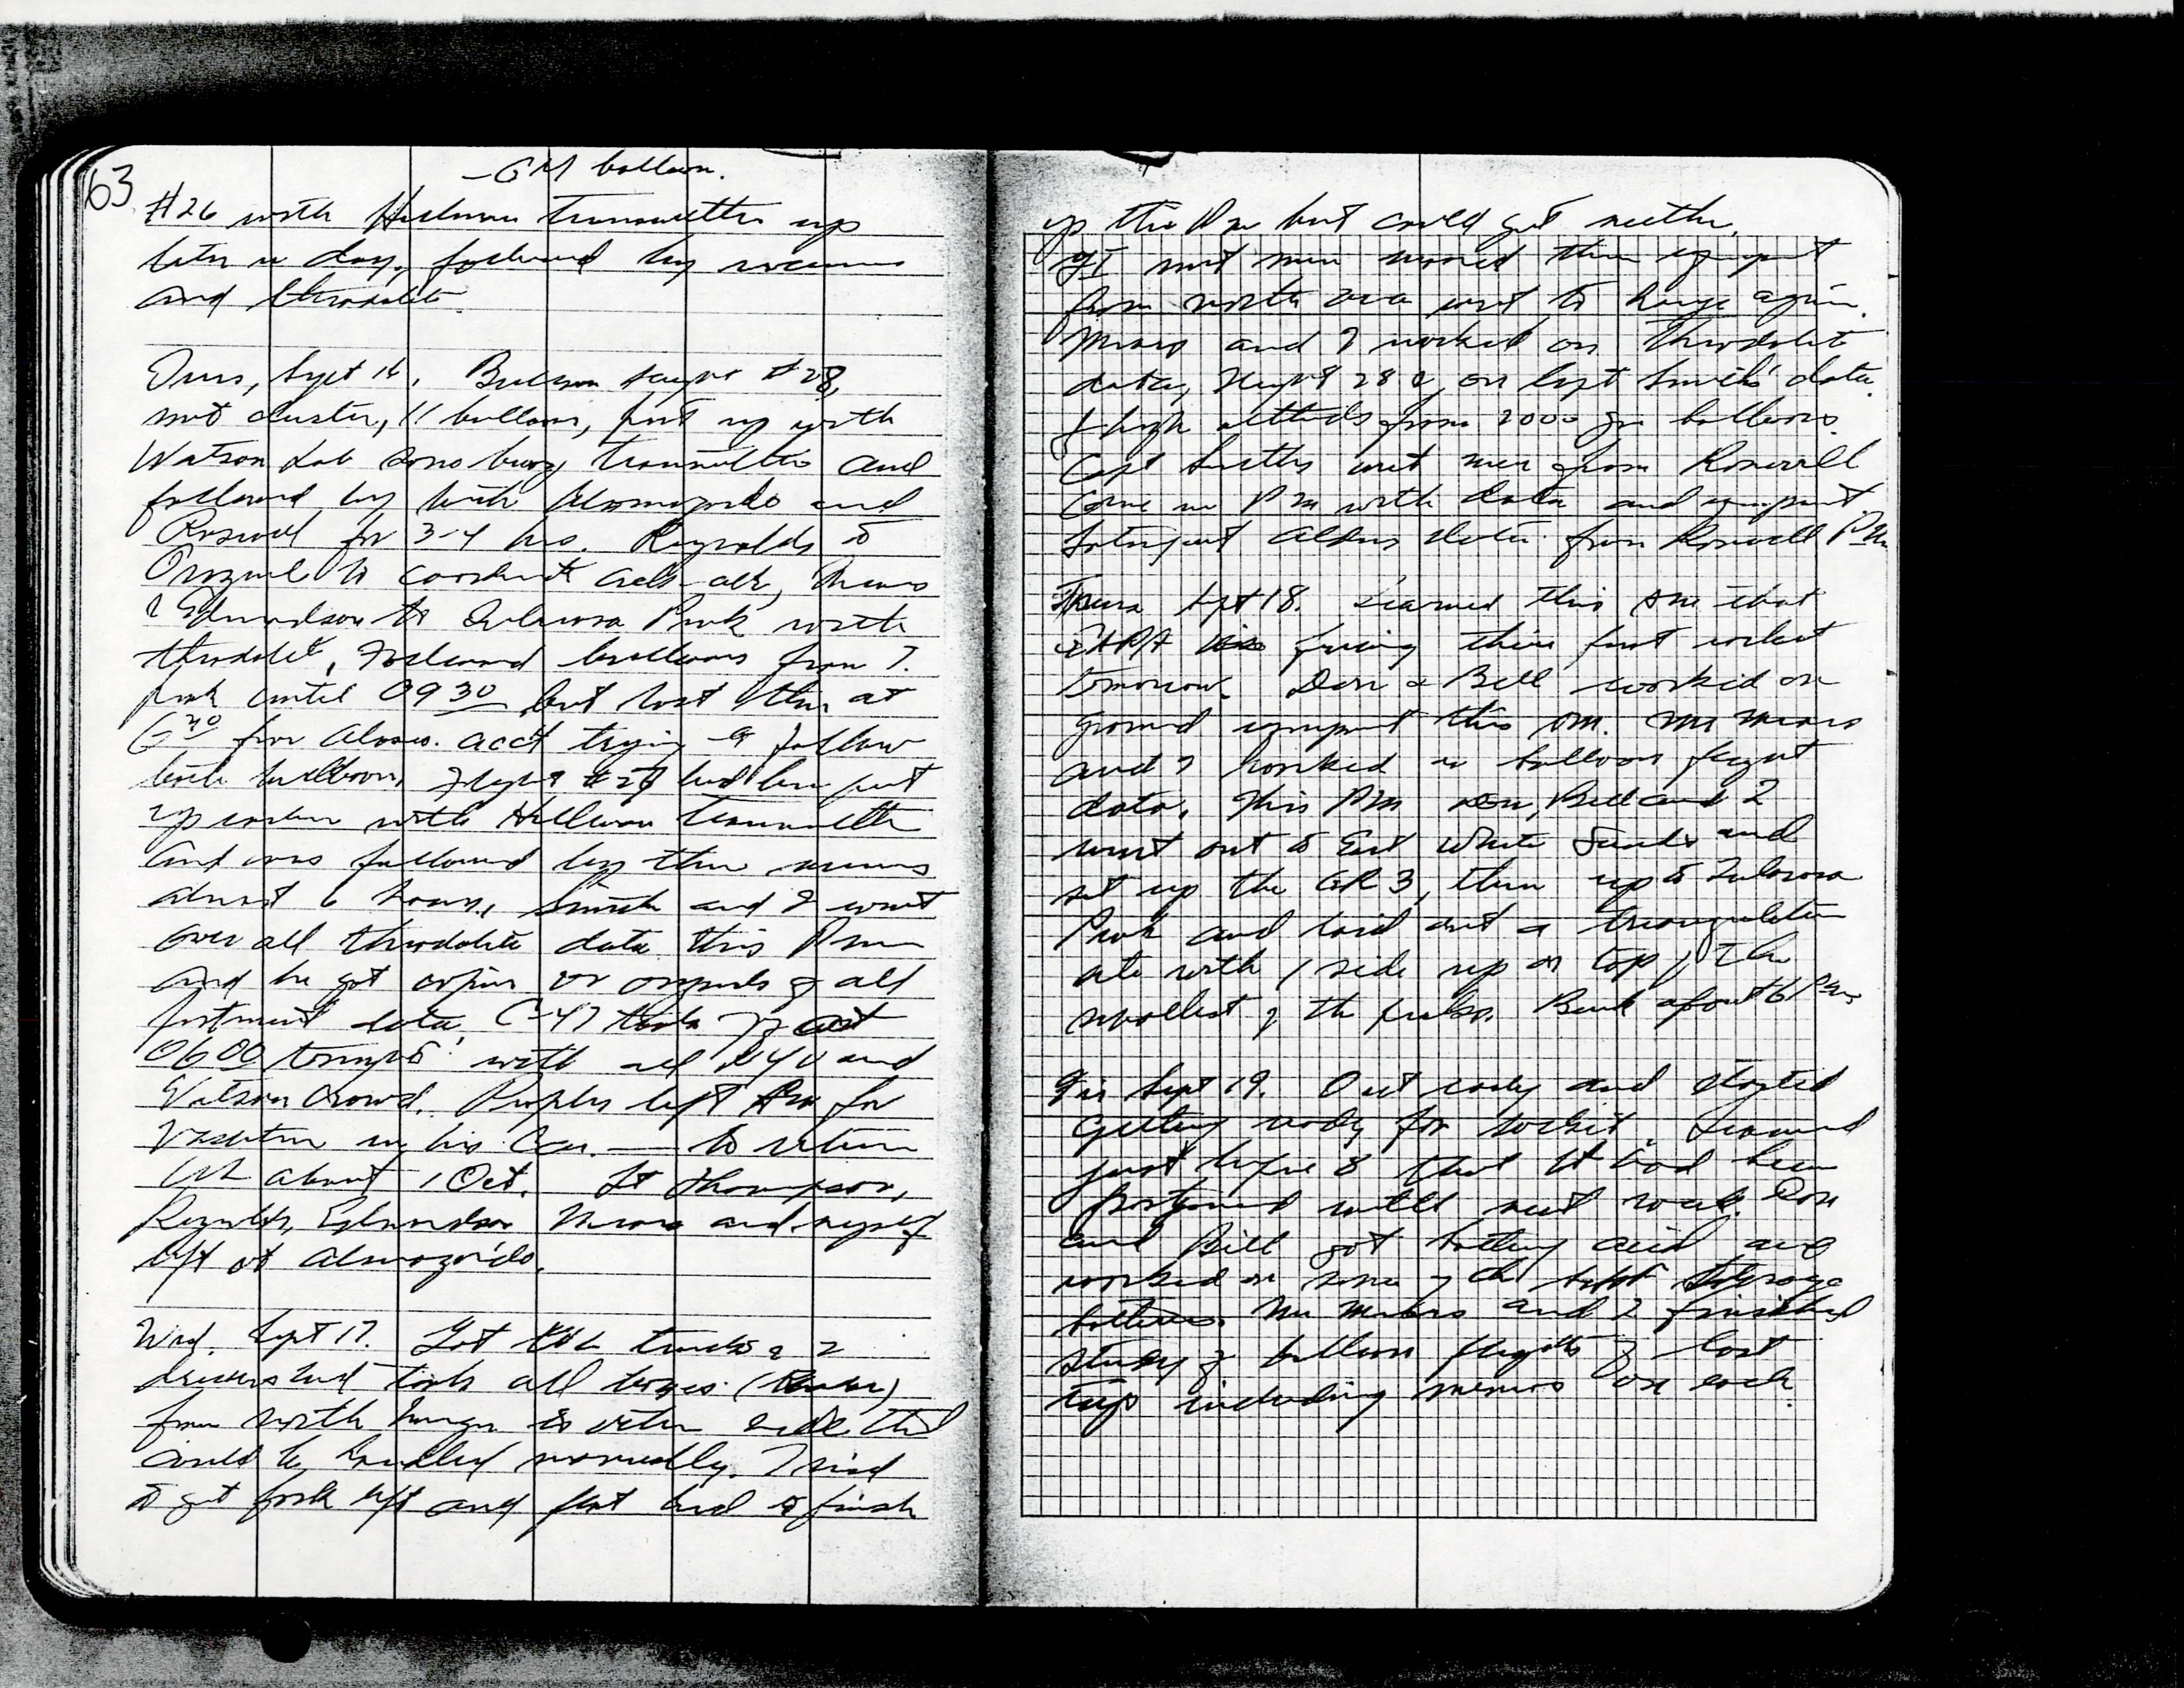 63
- GM balloon.
#26 with Heilman transmitter up
later in day, followed by receivers
and theodolite.
Tues, Sept 16. Balloon flight #28,
met cluster, 11 balloons, put up with
Watson Lab sono buoy transmitter and
followed by both Alamogordo and
Roswell for 3-4 hrs. Reynolds to
to coordinate Mears
& Edmondson to Tularosa Peak with
theodolite. Followed balloons from T.
Peak until 09 30 but lost them at
from Alamo. acc't trying to follow
both balloons. Flight had been put
up earlier with Heilman transmitter
and was followed by three receivers
almost 6 hours. Smith and I went
over all theodolite data this Pm
and he got copies or originals of all
pertinent data. C-47 took off at
0600 tonight with all NYU and
Watson crowd. Peoples left Am for
vacation in his car. — to return
about 1 Oct. Lt Thompson,
Reynolds, Edmondson, Mears and myself
left at Alamogordo.
Wed. Sept 17. Got trucks & 2
drivers and took all boxes
from North hangar to other side that
could be handled manually. Tried
to get fork lift and flat bed to finish
up this Pm but could get neither.
met men moved their equipment
from north area west to hangar again.
Mears and I worked on theodolite
data, flight 28 & on Capt Smith's data
of high altitudes from 2000 gm balloons.
Capt met men from Roswell
came in Pm with data and equipment.
data from Roswell Pm
Thurs Sept 18. Learned this Am that
firing their first rocket
tomorrow. Don & Bill worked on
ground equipment this Am. Mr Mears
and I worked on balloon flight
data. This Pm Don, Bill and I
went out to East White Sands and
set up the GR 3, then up to Tularosa
Peak and laid out a triangulation
site with 1 side up on top of the
smallest of the peaks. Back about 6 Pm
Fri Sept 19. Out early and started
getting ready for rocket. Learned
just before 8 that it had been
postponed until next week. Don
and Bill got battery acid and
worked on some of the storage
batteries. Mr Mears and I finished
study of balloon flights of last
trip including memos on each.